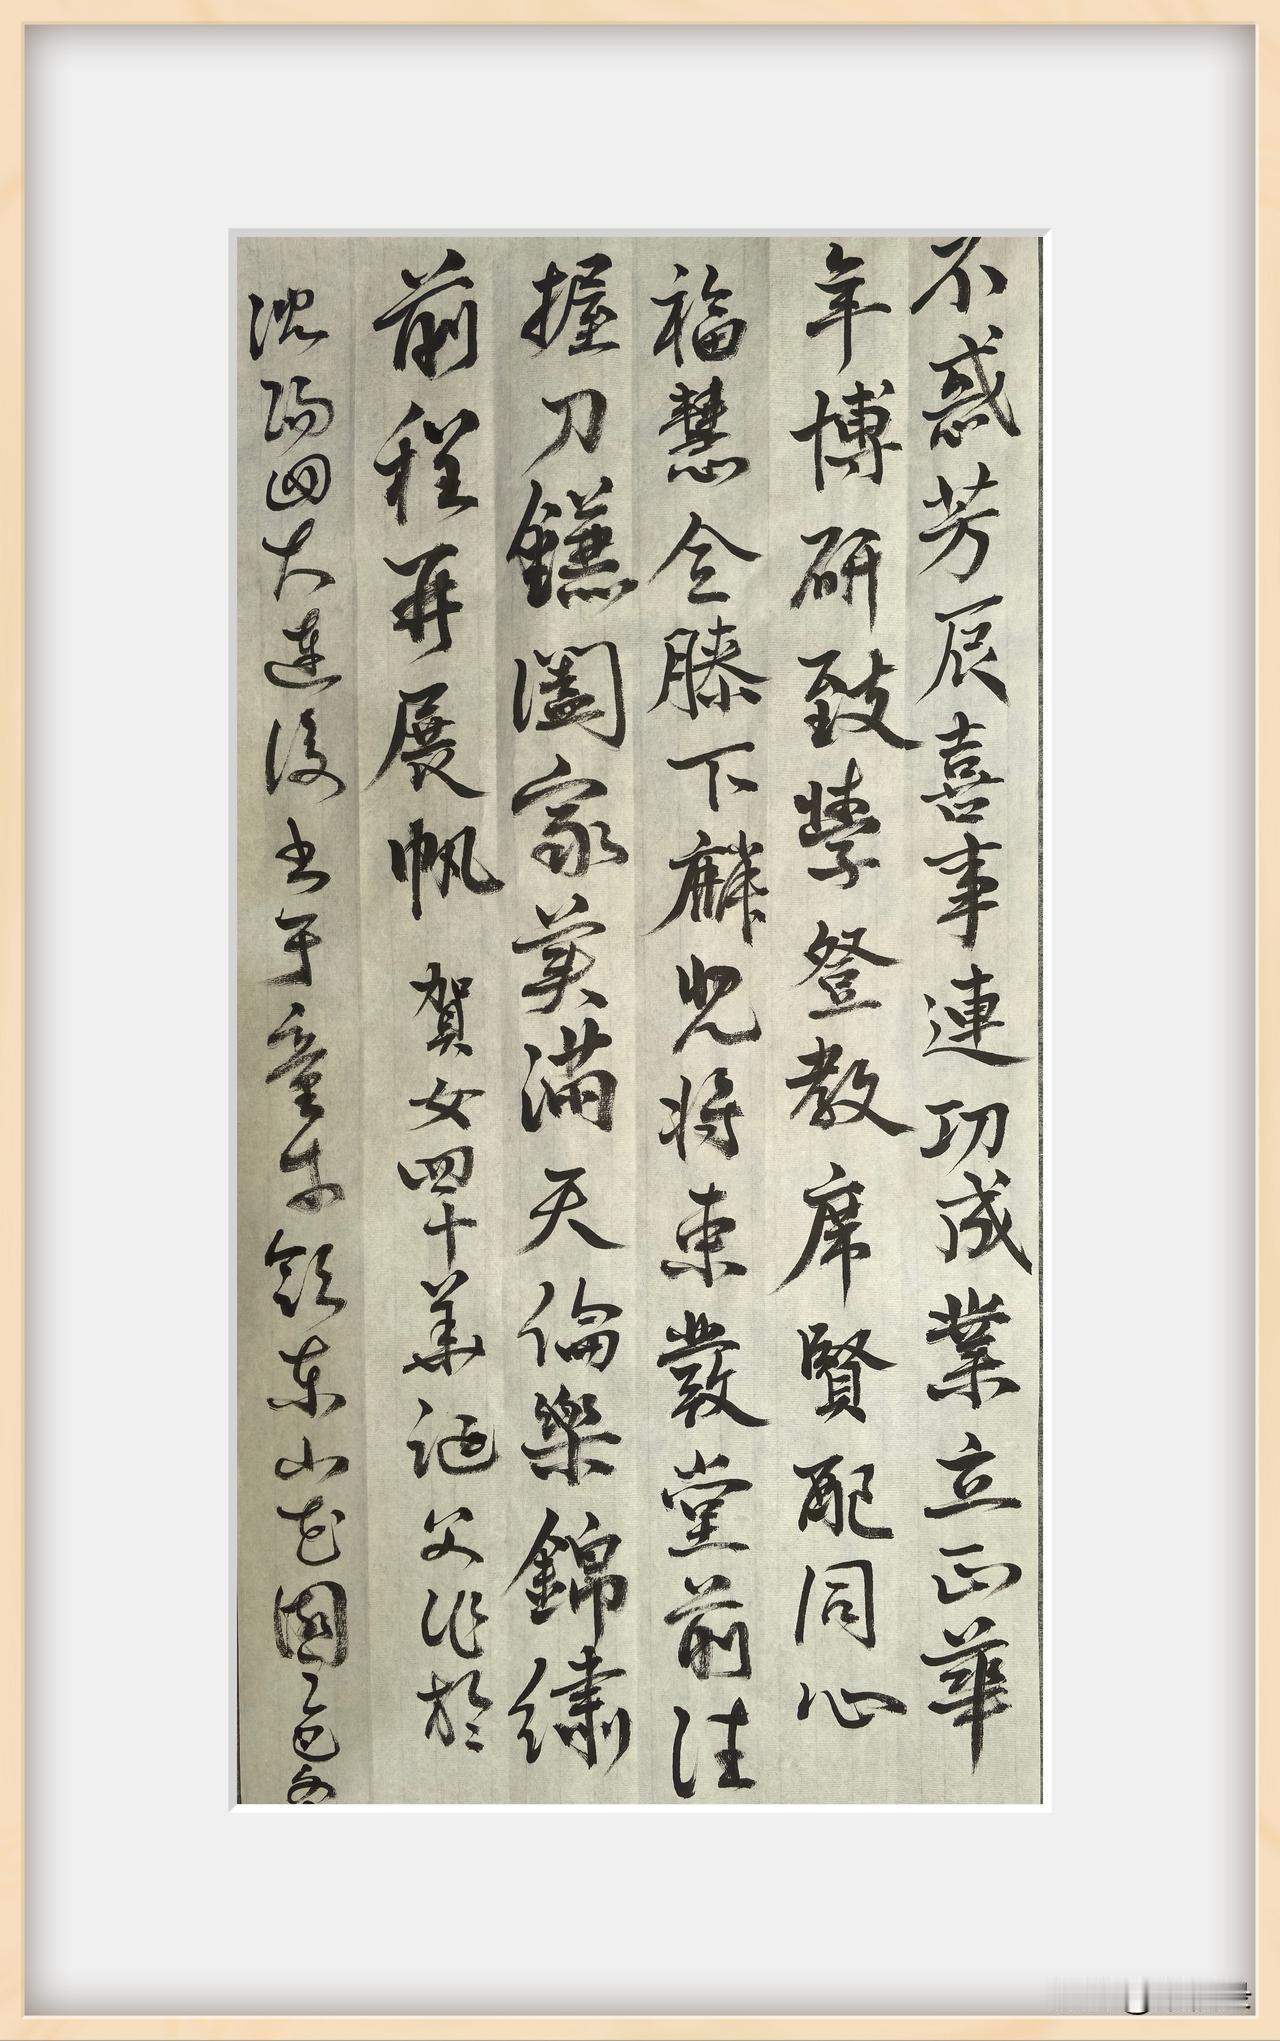 不惑芳辰喜事連功成業立正華
年博研致學登教席賢配同心
福慧全膝下麟兒將束髮堂前佳
握刀鐮闔家美滿天倫樂錦繡
前程再展帆 賀女四十華誕父作於
沈陽回大連後書于童牛嶺東山花園